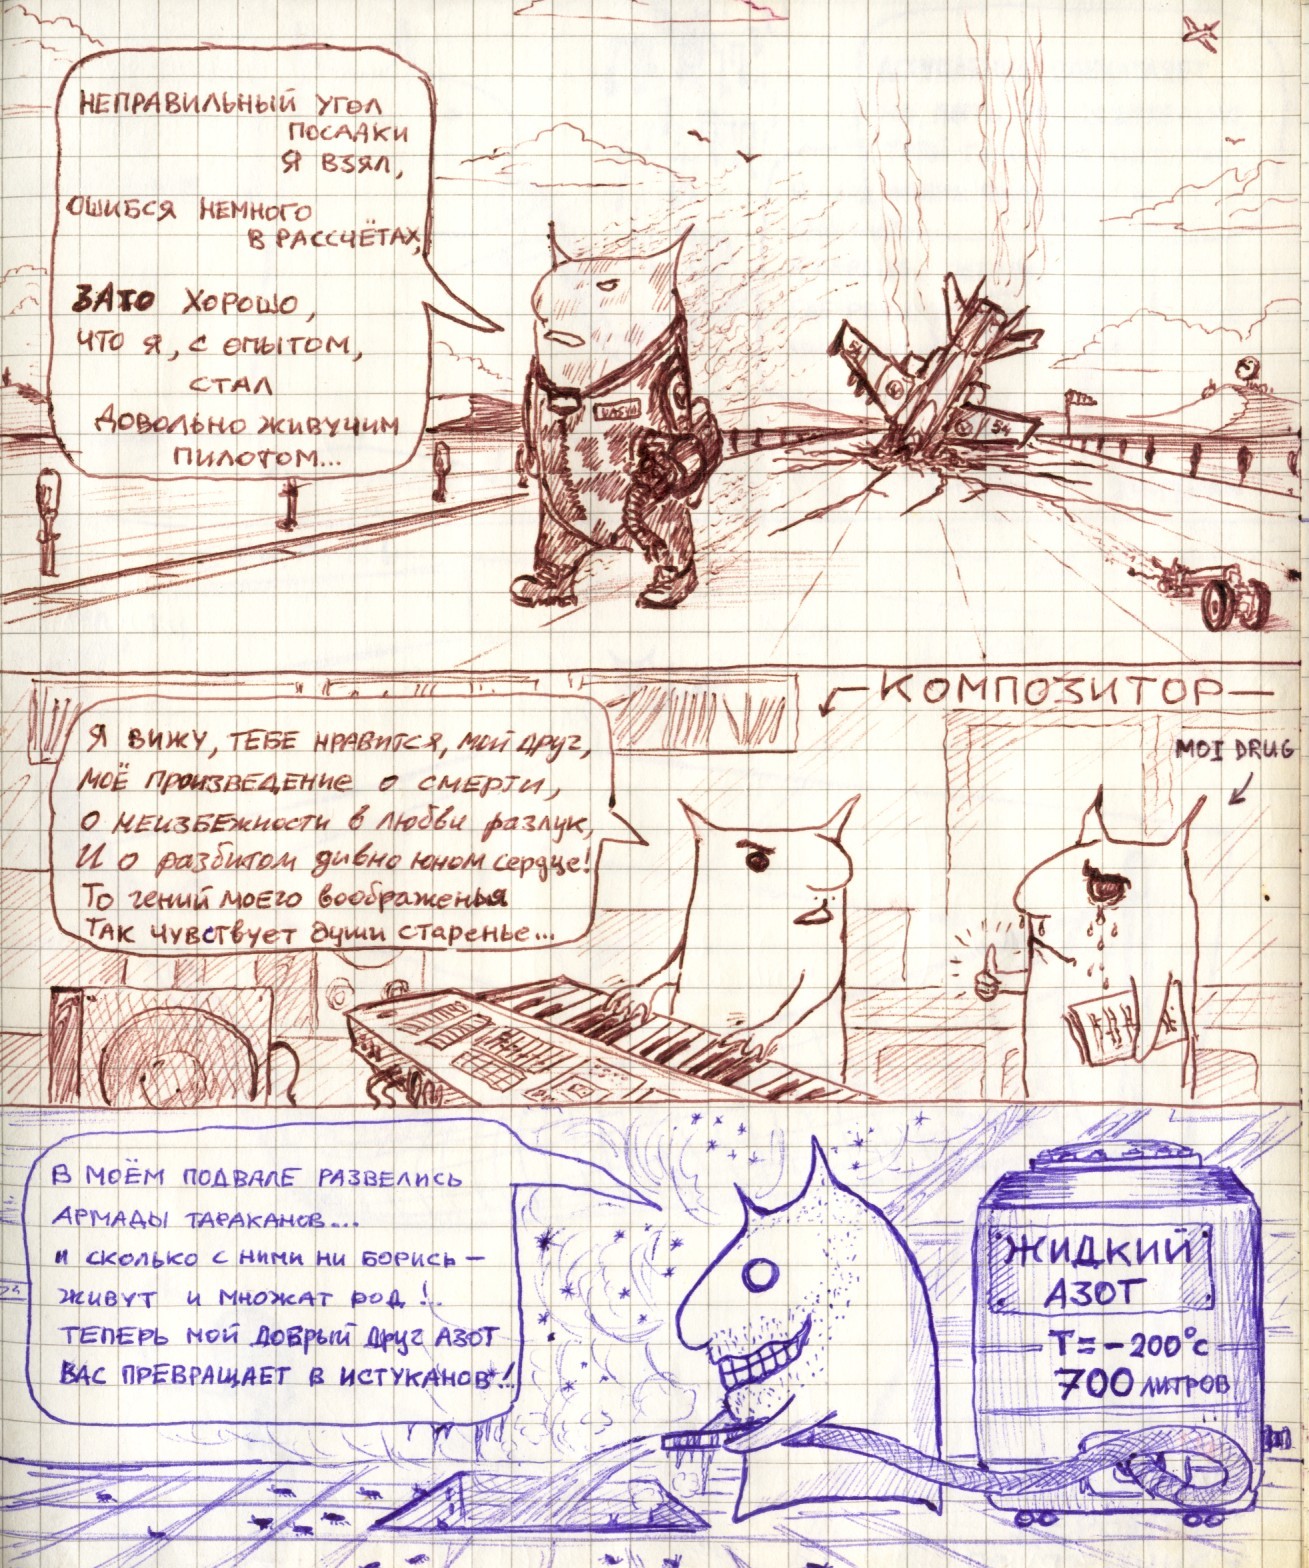 НЕПРАВИЛЬНЫЙ УГОЛ
ПОСАДКИ
Я ВЗЯЛ,
ОШИБСЯ НЕМНОГО
В РАССЧЁТАХ,
ЗАТО ХОРОШО,
ЧТО Я, С ОПЫТОМ,
СТАЛ
ДОВОЛЬНО ЖИВУЧИМ
ПИЛОТОМ...
54
КОМПОЗИТОР
MOI DRUG
Я ВИЖУ, ТЕБЕ НРАВИТСЯ, МОЙ ДРУГ,
МОЁ ПРОИЗВЕДЕНИЕ О СМЕРТИ,
О НЕИЗБЕЖНОСТИ В ЛЮБВИ РАЗЛУК,
И О РАЗБИТОМ ДИВНО ЮНОМ СЕРДЦЕ!
ТО ГЕНИЙ МОЕГО ВООБРАЖЕНЬЯ
ТАК ЧУВСТВУЕТ ДУШИ СТАРЕНЬЕ...
В МОЁМ ПОДВАЛЕ РАЗВЕЛИСЬ
АРМАДЫ ТАРАКАНОВ...
И СКОЛЬКО С НИМИ НИ БОРИСЬ –
ЖИВУТ И МНОЖАТ РОД!..
ТЕПЕРЬ МОЙ ДОБРЫЙ ДРУГ АЗОТ
ВАС ПРЕВРАЩАЕТ В ИСТУКАНОВ!!
ЖИДКИЙ
АЗОТ
T=-200°С
700 ЛИТРОВ